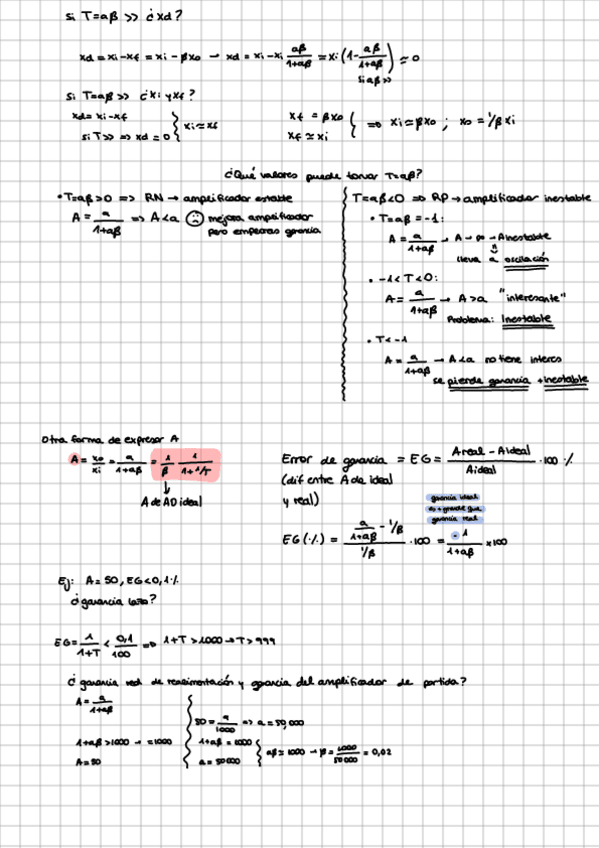 si T=aβ >> ¿xd?
xd = xi-xf = xi - βxo → xd = xi-xi aβ/1+aβ = xi (1- aβ/1+aβ) ≈ 0
si aβ>>
si T=aβ >> ¿xi y xf?
xd = xi-xf
si T>> ⇒ xd = 0 } xi ≈ xf
xf = βxo
xf ≈ xi } ⇒ xi ≈ βxo ; xo = 1/β xi
¿Qué valores puede tomar T=aβ?
• T=aβ>0 ⇒ RN → amplificador estable
A = a/1+aβ ⇒ A<a ☹ mejora amplificador
pero empeoras ganancia
T=aβ<0 ⇒ RP → amplificador inestable
• T=aβ = -1:
A = a/1+aβ → A→∞ → A inestable
lleva a oscilación
• -1<T<0:
A = a/1+aβ → A>a "interesante"
Problema: Inestable
• T<-1
A = a/1+aβ → A<a no tiene interés
se pierde ganancia + inestable
Otra forma de expresar A
A = xo/xi = a/1+aβ = 1/β 1/1+1/T
↓
A de AO ideal
Error de ganancia = EG = Areal - Aideal/Aideal · 100 %
(dif entre A de ideal
y real)
ganancia ideal
es + grande que
ganancia real
EG (%) = a/1+aβ - 1/β / 1/β · 100 = - 1/1+aβ × 100
Ej: A = 50, EG<0,1%
¿ganancia lazo?
EG = 1/1+T < 0,1/100 ⇒ 1+T > 1000 → T > 999
¿ganancia red de realimentación y ganancia del amplificador de partida?
A = a/1+aβ
1+aβ > 1000 → = 1000
A = 50
50 = a/1000 ⇒ a = 50,000
1+aβ = 1000
a = 50000 } aβ ≈ 1000 → β = 1000/50000 = 0,02